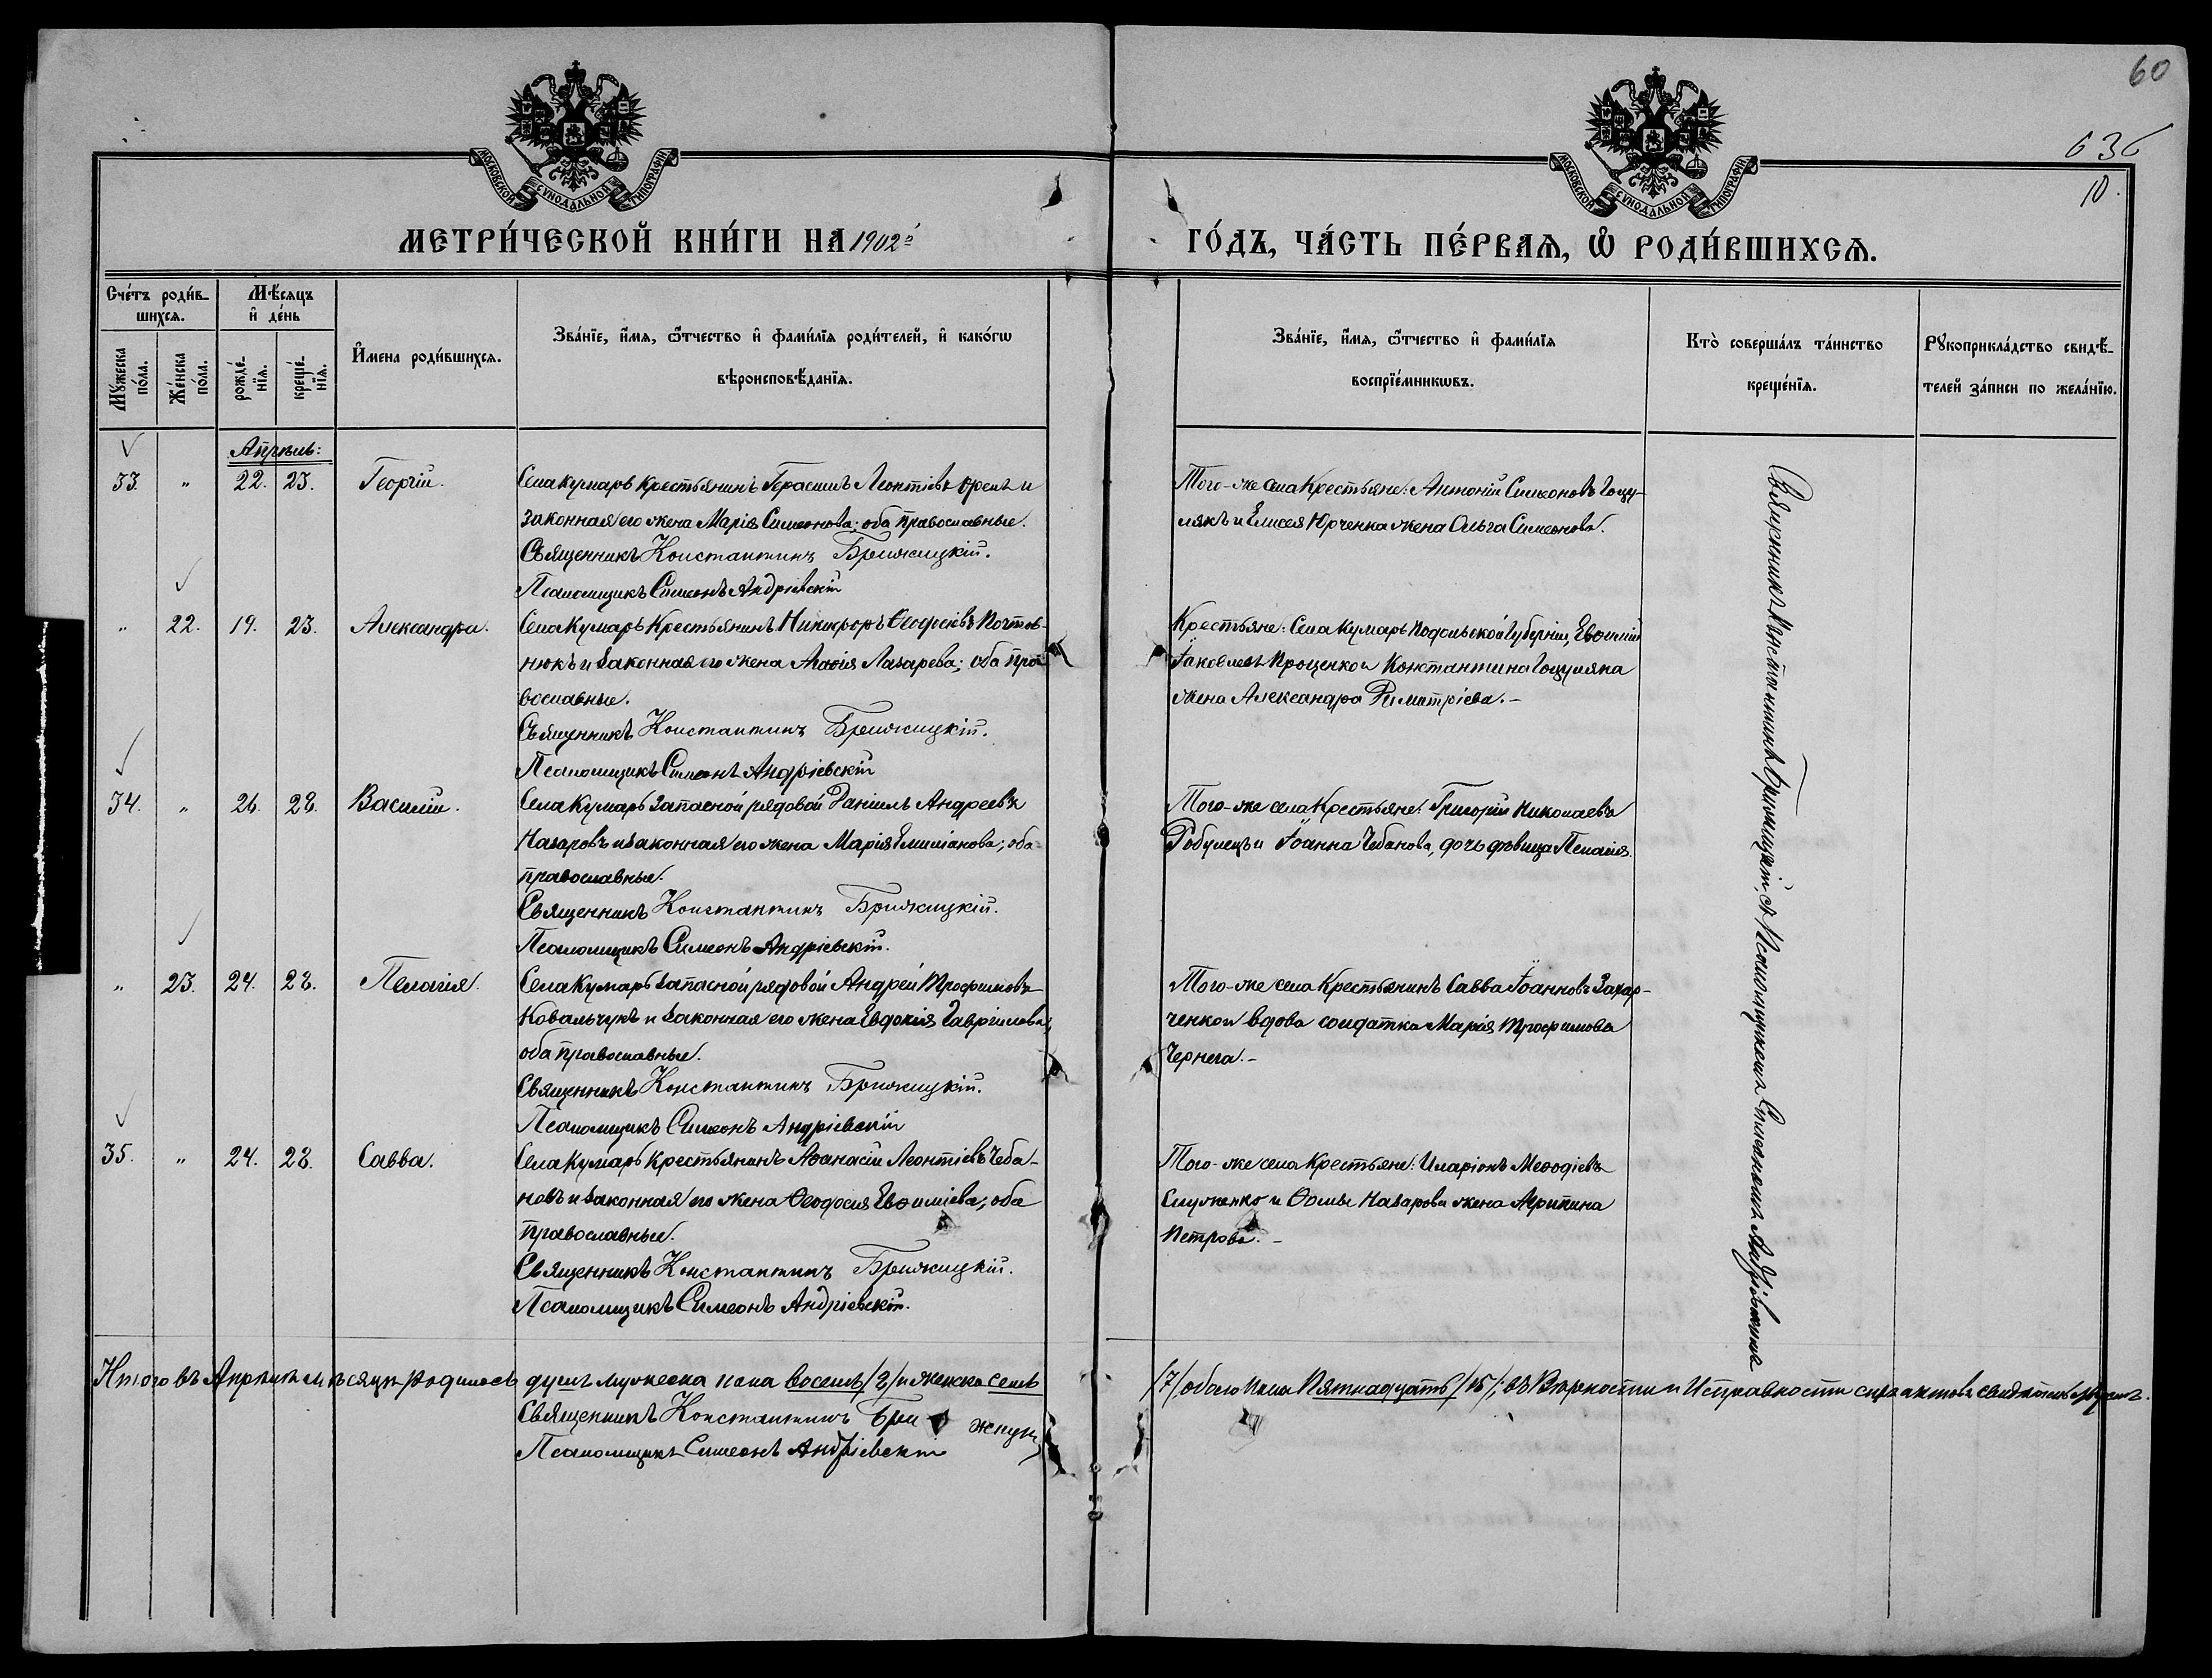 60
636
10.
МОСКОВСКОЙ СѴНОДАЛЬНОЙ ТИПОГРАФІИ
МОСКОВСКОЙ СѴНОДАЛЬНОЙ ТИПОГРАФІИ
МЕТРИ́ЧЕСКОЙ КНИ́ГИ НА 1902й
ГО́ДЪ, ЧА́СТЬ ПЕ́РВАѦ, Ѡ҆ РОДИ́ВШИХСѦ.
Сче́тъ роди́в-
шихсѧ.
Мѣ́сѧцъ
и҆ де́нь
Мꙋ́жеска
по́ла.
Же́нска
по́ла.
рожде́-
нїѧ.
креще́-
нїѧ.
И҆мена роди́вшихсѧ.
Зва́нїе, и҆́мѧ, ѻ҆́тчество и҆ фами́лїѧ роди́телей, и҆ како́гѡ
вѣроисповѣ́данїѧ.
Зва́нїе, и҆́мѧ, ѻ҆́тчество и҆ фами́лїѧ
воспрїе́мникѡвъ.
Кто̀ соверша́лъ та́инство
креще́нїѧ.
Рꙋкоприкла́дство свидѣ́-
телей за́писи по жела́нїю.
Апрѣль:
33. " 22. 23. Георгій. Села Кумаръ Крестьянинъ Герасимъ Леонтіевъ и
законная его жена Марія Симеонова; оба православные.
Священникъ Константинъ Бржицкій.
Псаломщикъ Симеонъ Андріевскій
Того-же села Крестьяне: Антоній Симеоновъ Гоцу-
лякъ и Елисея Юрченка жена Ольга Симеонова.
" 22. 19. 23. Александра. Села Кумаръ Крестьянинъ Никифоръ Ѳеодосіевъ Почтов-
нюкъ и законная его жена Агаѳія Лазарева; оба пра-
вославные.
Священникъ Константинъ Бржицкій.
Псаломщикъ Симеонъ Андріевскій
Крестьяне: Села Кумаръ Подольской Губерніи, Евѳимій
Іаковлевъ Проценко и Константина Гоцуляка
жена Александра Димитріева.-
34. " 26. 28. Василій. Села Кумаръ запасной рядовой Даніилъ Андреевъ
Назаровъ и законная его жена Марія Емиліанова; оба
православные.
Священникъ Константинъ Бржицкій.
Псаломщикъ Симеонъ Андріевскій.
Того-же села Крестьяне: Григорій Николаевъ
Робулецъ и Іоанна Чебанова, дочь девица Пелагія.
" 23. 24. 28. Пелагія. Села Кумаръ запасной рядовой Андрей Трофимовъ
Ковальчукъ и законная его жена Евдокія Гавриилова;
оба православные.
Священникъ Константинъ Бржицкій.
Псаломщикъ Симеонъ Андріевскій
Того-же села Крестьянинъ Савва Іоанновъ Захар-
ченко и вдова солдатка Марія Трофимова
Чернега.-
35. " 24. 28. Савва. Села Кумаръ Крестьянинъ Аѳанасій Леонтіевъ Чеба-
новъ и законная его жена Ѳеодосія Евѳиміева; оба
православные.
Священникъ Константинъ Бржицкій.
Псаломщикъ Симеонъ Андріевскій.
Того-же села Крестьяне: Иларіонъ Меѳодіевъ
и Ѳомы Назарова жена Агрипина
Петрова.-
Священникъ Константинъ Бржицкій съ Псаломщикомъ Симеономъ Андріевскимъ
Итого въ Апрѣлѣ мѣсяцѣ родилось душъ мужеска пола восемь /8/ и женска семь
/7/ обоего пола Пятнадцать /15/; въ вѣрности и исправности сихъ актовъ свидѣтельствуемъ.
Священникъ Константинъ Бржицкій
Псаломщикъ Симеонъ Андріевскій